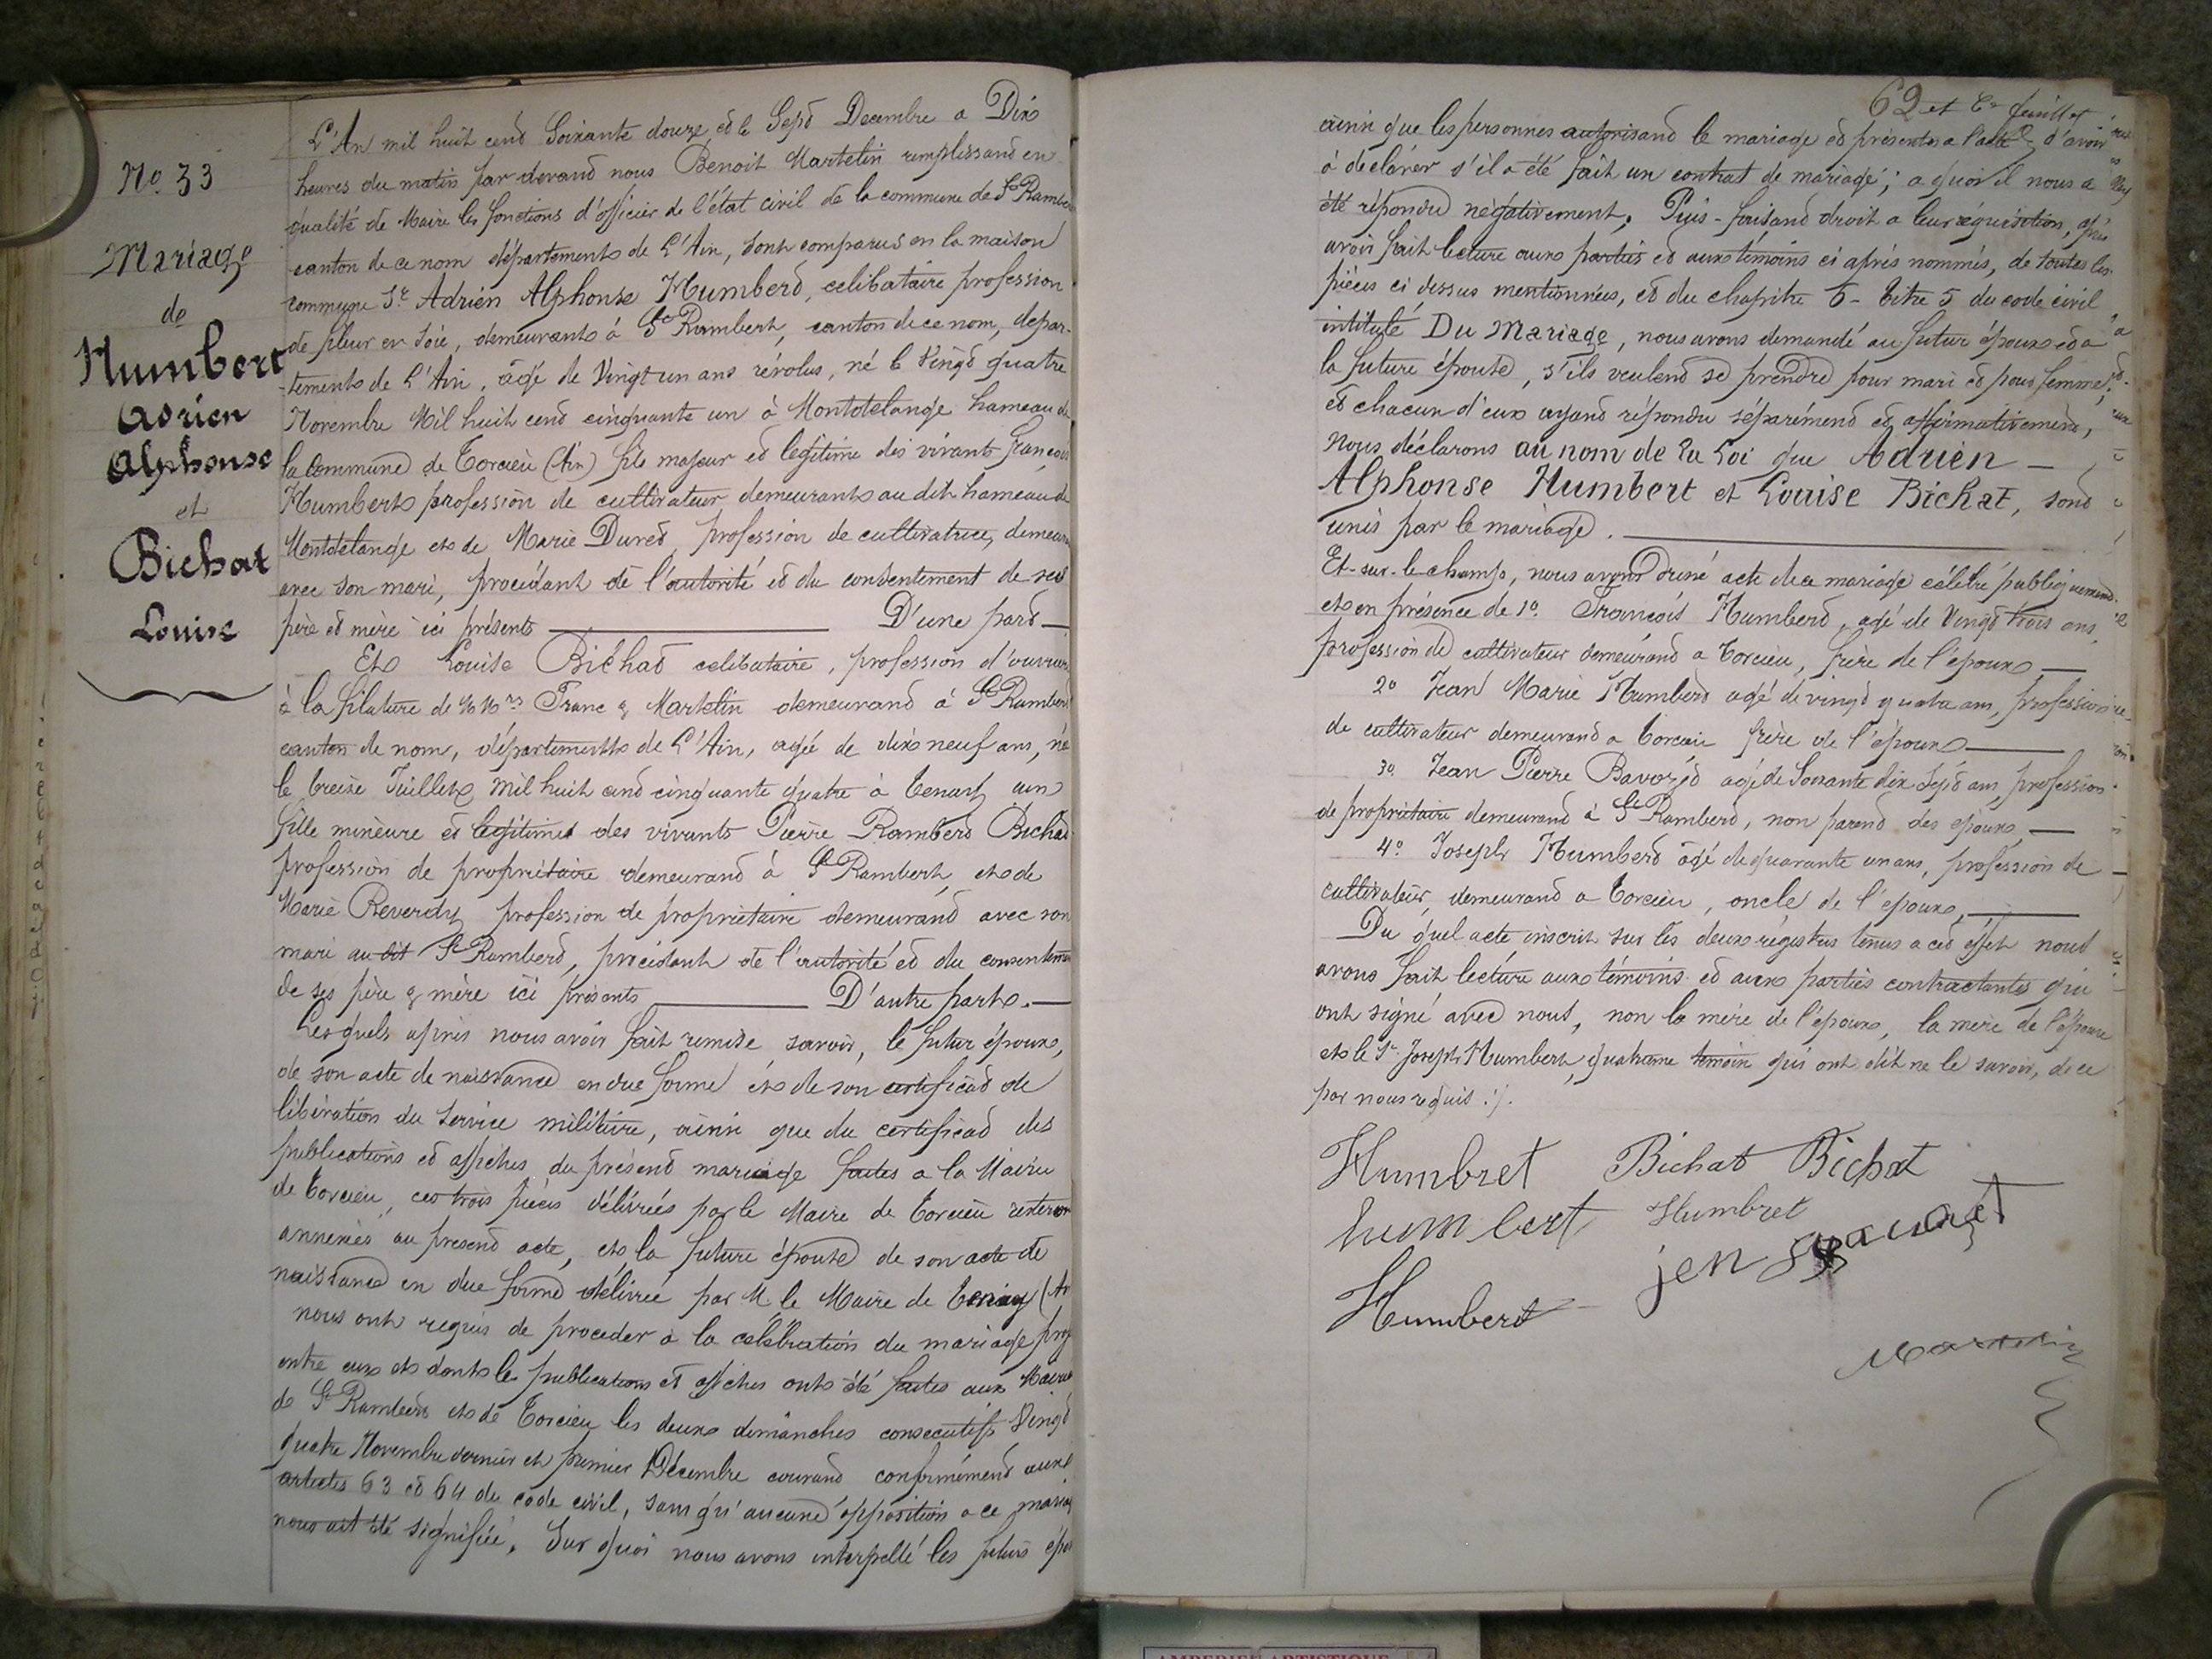 No. 33
Mariage
de
Humbert
Adrien
Alphonse
et
Bichat
Louise
L'An mil huit cent Soixante douze et le Sept Decembre a Dix
heures du matin par devant nous Benoit Martelin remplissant en
qualité de Maire les fonctions d'officier de l'état civil de la commune de St Rambert
canton de ce nom département de L'Ain, sont comparus en la maison
commune Sr Adrien Alphonse Humbert, celibataire profession
de fileur en soie, demeurant à St Rambert, canton de ce nom, depar-
-tement de L'Ain, âgé de Vingt un ans révolus, né le Vingt quatre
Novembre Mil huit cent cinquante un à Montdelange hameau de
la Commune de Torcieu (Ain) fils majeur et legitime des vivants francois
Humbert profession de cultivateur demeurant au dit hameau de
Montdelange et de Marie Duret, profession de cultivatrice, demeurant
avec son mari, procédant de l'autorité et du consentement de ses
père et mère ici présents D'une part
Et Louise Bichat celibataire, profession d'ouvrière
à la filature de MMrs Franc & Martelin demeurant à St Rambert
canton de nom, département de L'Ain, agée de dix neuf ans, née
le treize Juillet mil huit cent cinquante quatre à Tenay ain
fille mineure et legitime des vivants Pierre Rambert Bichat
profession de propriétaire demeurant à St Rambert, et de
Marie Reverdy profession de propriétaire demeurant avec son
mari au dit St Rambert, procédant de l'autorité et du consentement
de ses père & mère ici présents D'autre part.
Lesquels après nous avoir fait remise savoir, le futur époux,
de son acte de naissance en due forme et de son certificat de
libération du service militaire, ainsi que du certificat des
publications et affiches du présent mariage faites a la Mairie
de Torcieu, ces trois pièces délivrées par le Maire de Torcieu resteront
annexées au present acte, et la future épouse de son acte de
naissance en due forme délivrée par M. le Maire de Tenay (Ain
nous ont requis de proceder à la célébration du mariage proj
entre eux et dont les publications et affiches ont été faites aux Mairies
de St Rambert et de Torcieu les deux dimanches consecutifs Vingt
quatre Novembre dernier et premier Décembre courant conformément aux
articles 63 et 64 du code civil, sans qu'aucune opposition a ce mariage
nous ait été signifiée. Sur quoi nous avons interpellé les futurs époux
62 et Er feuillet
ainsi que les personnes autorisant le mariage et présentes a l'acte d'avoir
à declarer s'il a été fait un contrat de mariage; a quoi il nous a
été répondu négativement. Puis faisant droit a leur réquisition, après
avoir fait lecture aux parties et aux témoins ci après nommés, de toutes les
pièces ci dessus mentionnées, et du chapitre 6 - titre 5 du code civil
intitulé Du Mariage, nous avons demandé au futur époux et a
la future épouse, s'ils veulent se prendre pour mari et pour femme,
et chacun d'eux ayant répondu séparément et affirmativement,
nous déclarons au nom de la Loi que Adrien
Alphonse Humbert et Louise Bichat, sont
unis par le mariage.
Et-sur-le champ, nous avons dressé acte de ce mariage célébré publiquement
et en présence de 1o. François Humbert, agé de Vingt trois ans,
profession de cultivateur demeurant a Torcieu, frère de l'epoux
2o Jean Marie Humbert agé de vingt quatre ans, profession
de cultivateur demeurant a Torcieu frère de l'époux
3o. Jean Pierre Bavozet agé de Soixante dix Sept ans, profession
de propriétaire demeurant à St Rambert, non parent des epoux,
4o. Joseph Humbert âgé de quarante un ans, profession de
cultivateur, demeurant a Torcieu, oncle de l'époux,
Du quel acte inscrit sur les deux régistres tenus a cet effet nous
avons fait lecture aux témoins et aux parties contractantes qui
ont signé avec nous, non la mère de l'époux, la mère de l'épouse
et le Sr Joseph Humbert, quatrieme temoin qui ont dit ne le savoir, de ce
par nous requis ./.
Humbret Bichat Bichat
humbert Humbret
Humbert
Martelin
AMBERIEU ARTISTIQUE